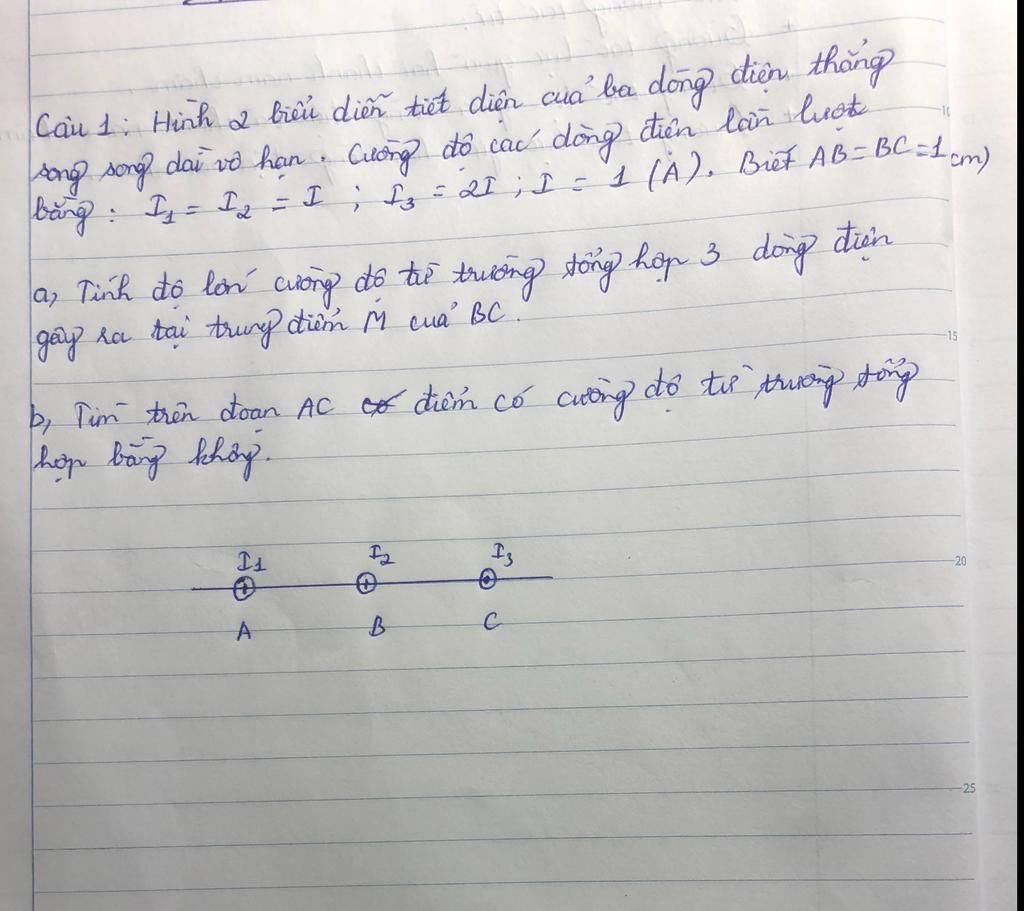 Câu 1: Hình 2 biểu diễn tiết diện của ba dòng điện thẳng
song song dài vô hạn. Cường độ các dòng điện lần lượt
bằng: I₁ = I₂ = I ; I₃ = 2I ; I = 1 (A). Biết AB = BC = 1 cm)
a, Tính độ lớn cường độ từ trường tổng hợp 3 dòng điện
gây ra tại trung điểm M của BC.
b, Tìm trên đoạn AC điểm có cường độ từ trường tổng
hợp bằng không.
I1 I₂ I₃
A B C
10
15
20
25